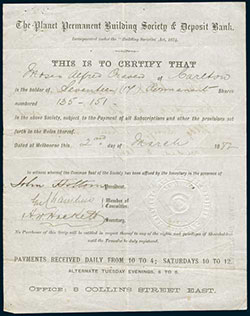 The Planet Permanent Building Society & Deposit Bank.
Incorporated under the "Building Societies Act, 1874.
THIS IS TO CERTIFY THAT
Moses Alfred of Carlton
is the holder of Seventeen (17) Permanent Shares
numbered 135-151
in the above Society, subject to the Payment of all Subscriptions and other the provisions set
forth in the Rules thereof.
Dated at Melbourne this 2nd day of March 1882
In witness whereof the Common Seal of the Society has been affixed by the Secretary in the presence of
John President.
Member of Committee.
Hackett Secretary.
No Purchaser of this Entry will be entitled in respect thereto to any of the rights and privileges of Shareholder
until the Transfer be duly registered.
PAYMENTS RECEIVED DAILY FROM 10 TO 4; SATURDAYS 10 TO 12.
ALTERNATE TUESDAY EVENINGS, 6 TO 8.
OFFICE: 8 COLLINS STREET EAST.